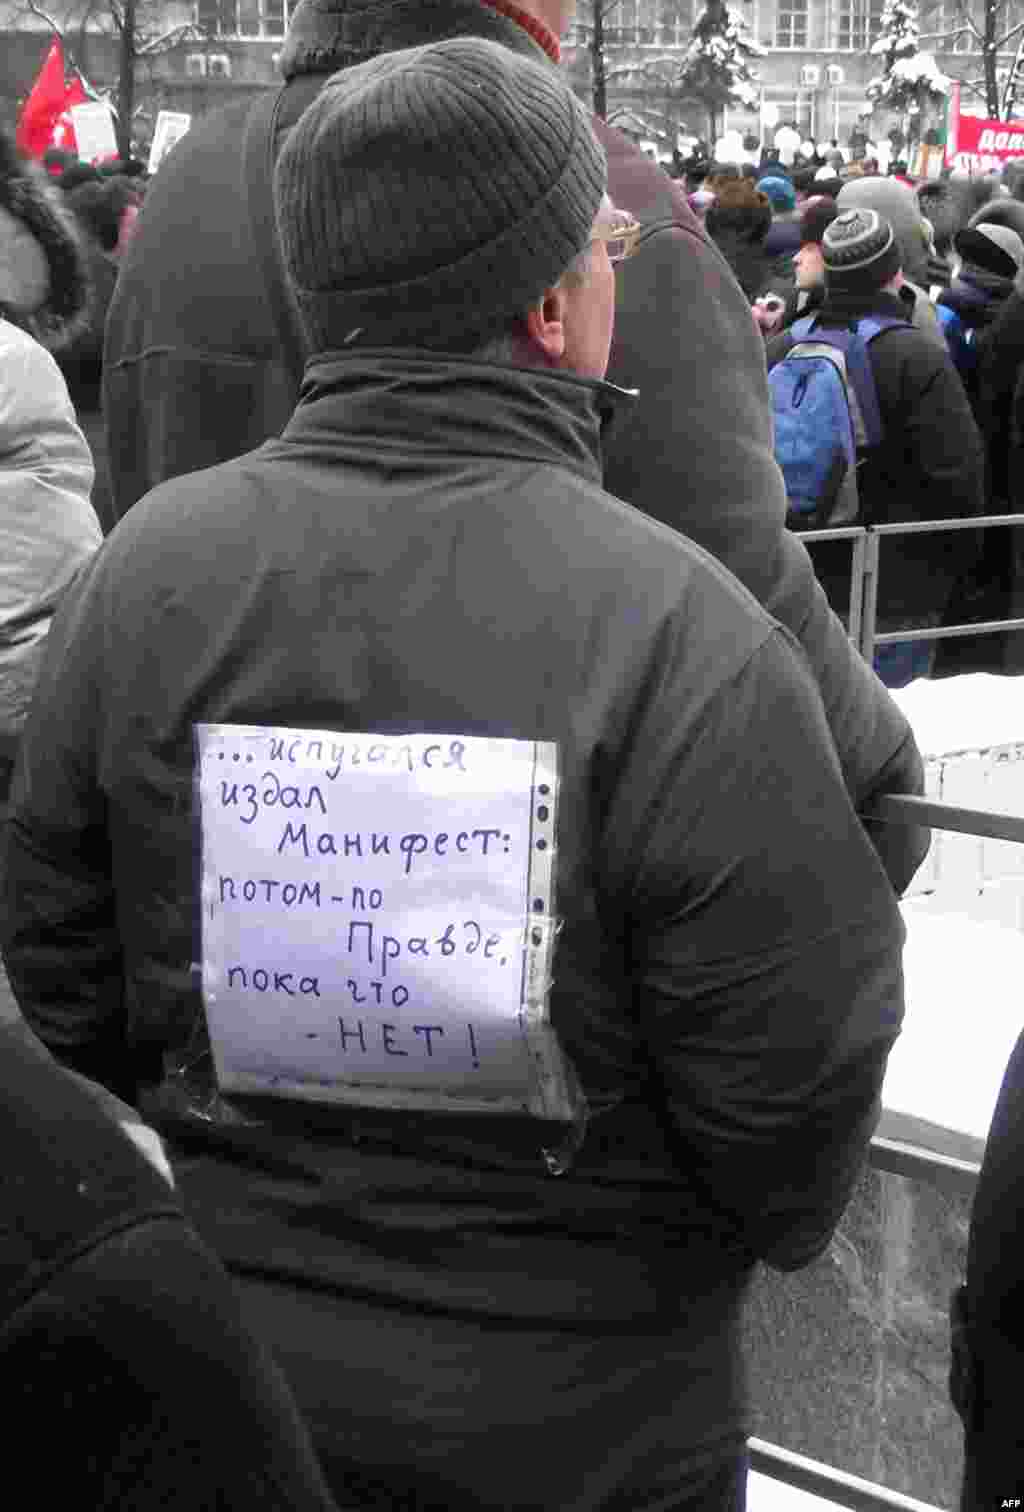 ... испугался
издал
Манифест:
потом-по
Правде,
пока что
- НЕТ!
ДОЛ
AFP